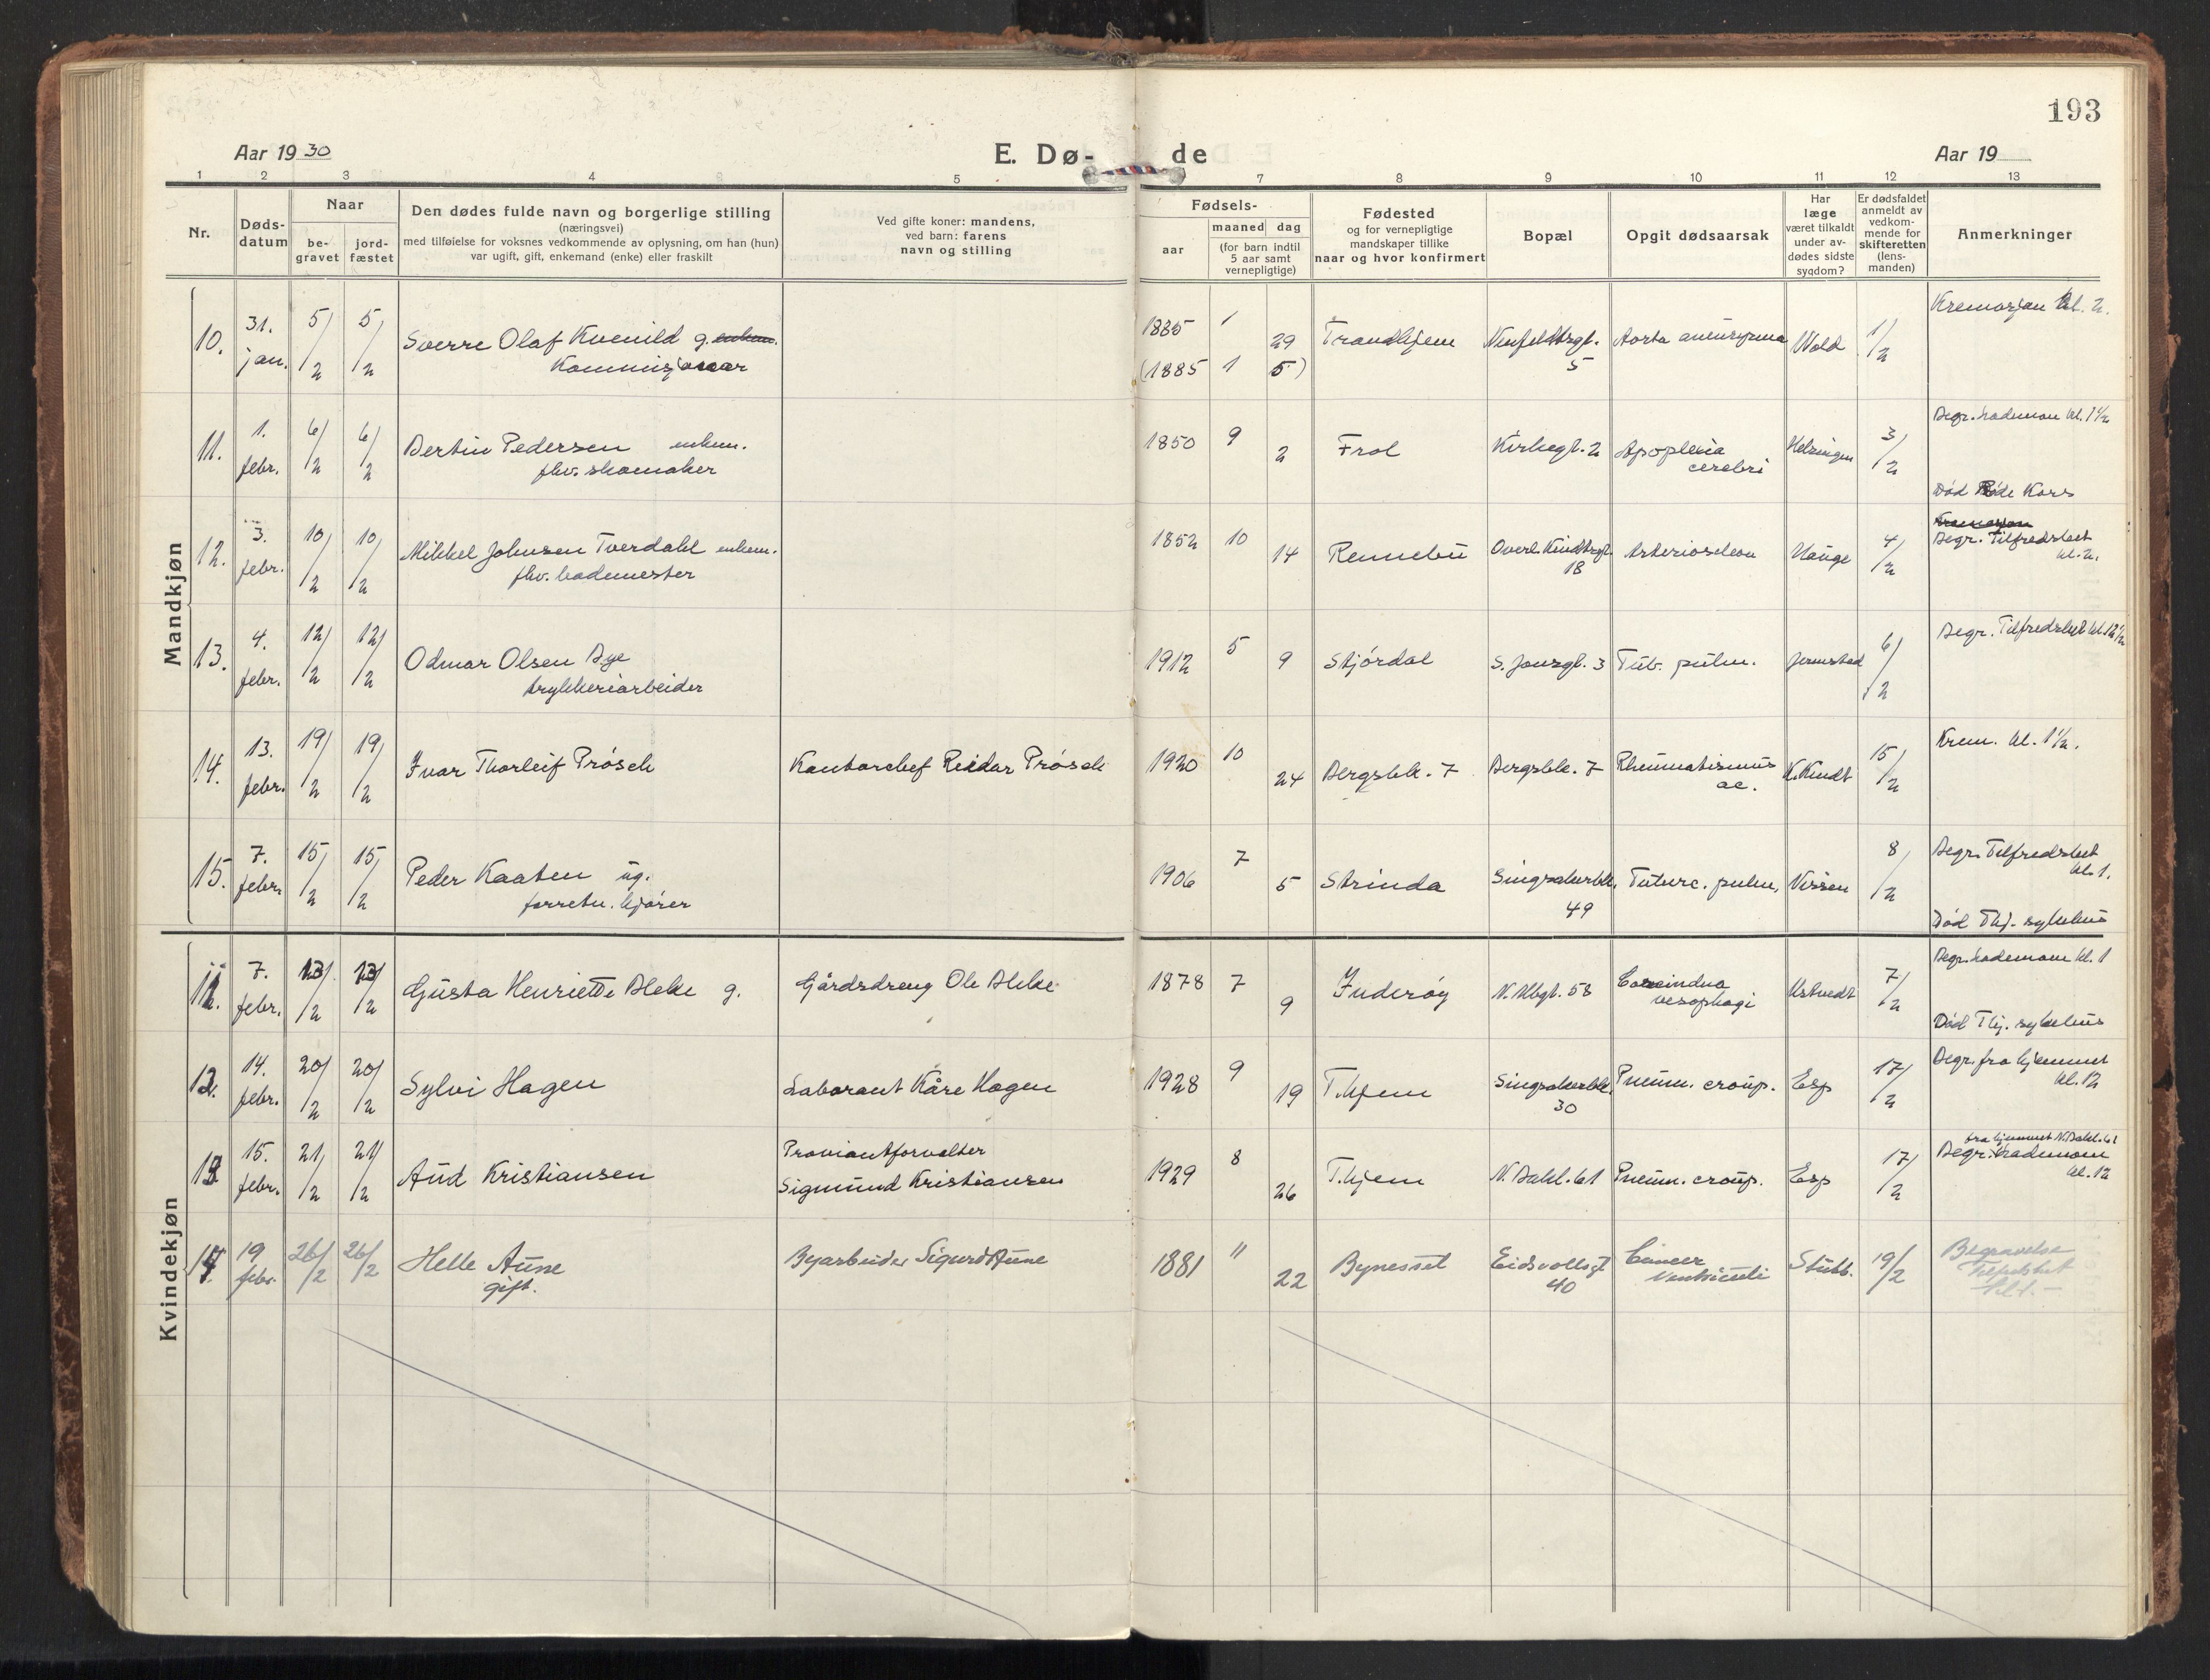 193
Aar 1930
E. Dø-de
Aar 19
1 2 3 4 5 7 8 9 10 11 12 13
Nr.
Døds-
datum
Naar
be-
gravet
jord-
fæstet
Den dødes fulde navn og borgerlige stilling
(næringsvei)
med tilføielse for voksnes vedkommende av oplysning, om han (hun)
var ugift, gift, enkemand (enke) eller fraskilt
Ved gifte koner: mandens,
ved barn: farens
navn og stilling
Fødsels-
aar
maaned dag
(for barn indtil
5 aar samt
vernepligtige)
Fødested
og for vernepligtige
mandskaper tillike
naar og hvor konfirmert
Bopæl
Opgit dødsaarsak
Har
læge
været tilkaldt
under av-
dødes sidste
sygdom?
Er dødsfaldet
anmeldt av
vedkom-
mende for
skifteretten
(lens-
manden)
Anmerkninger
Mandkjøn
10. 31. jan. 5/2 5/2 Sverre Olaf Kvenild g. enkem.
Kommisjonær
1885 1 29 Trondhjem
5 Aorta aneurysma Wold 1/2 Kremasjon kl. 2.
(1885 1 5)
11. 1. febr. 6/2 6/2 Bertin Pedersen enkem.
fhv. skomaker
1850 9 2 Frol Kirkegt. 2 Apoplexia
cerebri
3/2 Begr. Lademoen kl. 1½
Død Røde Kors
12. 3. febr. 10/2 10/2 Mikkel Johnsen Tverdahl enkem.
fhv. bademester
1852 10 14 Rennebu
18 Hauge 4/2 Kremasjon
Begr. Tilfredshet
kl. 2.
13. 4. febr. 12/2 12/2 Odmar Olsen Bye
trykkeriarbeider
1912 5 9 Stjørdal S. Jonsgt. 3 Tub. pulm. Jermstad 6/2 Begr. Tilfredshet kl. 12½
14. 13. febr. 19/2 19/2 Ivar Thorleif Prøsch
Kontorchef Reidar Prøsch
1920 10 24 Bergsbk. 7 Bergsbk. 7 Rheumatismus
ac.
K. Kindt 15/2 Krem. kl. 1½.
15. 7. febr. 15/2 15/2 Peder Kaaten ug.
forretn. kjører
1906 7 5 Strinda Singsakerbk.
49 Tuberc. pulm. Nissen 8/2 Begr. Tilfredshet
kl. 1.
Død Thj. sykehus
Kvindekjøn
11. 7. febr. 13/2 13/2 Gusta Henriette Bleke g.
Gårdsdreng Ole Bleke
1878 7 9 Inderøy 58
oesophagi
Ustvedt 7/2 Begr. Lademoen kl. 1
Død Thj. sykehus
12. 14. febr. 20/2 20/2 Sylvi Hagen
Laborant Kåre Hagen
1928 9 19 T.hjem Singsakerbk.
30 Pneum. croup. Esp 17/2 Begr. fra hjemmet
kl. 12
13. 15. febr. 21/2 21/2 Aud Kristiansen
Proviantforvalter
Sigmund Kristiansen
1929 8 26 T.hjem N. Bakl. 61 Pneum. croup. Esp 17/2 fra hjemmet N. Bakl. 61
Begr. Lademoen
kl. 12
14. 19 febr. 26/2 26/2 Helle Aune
gift.
Byarbeider Sigurd Aune
1881 11 22 Bynesset Eidsvollsgt
40 Cancer
ventriculi
Stubb. 19/2 Begravelse
Tilfredshet
kl. 1.